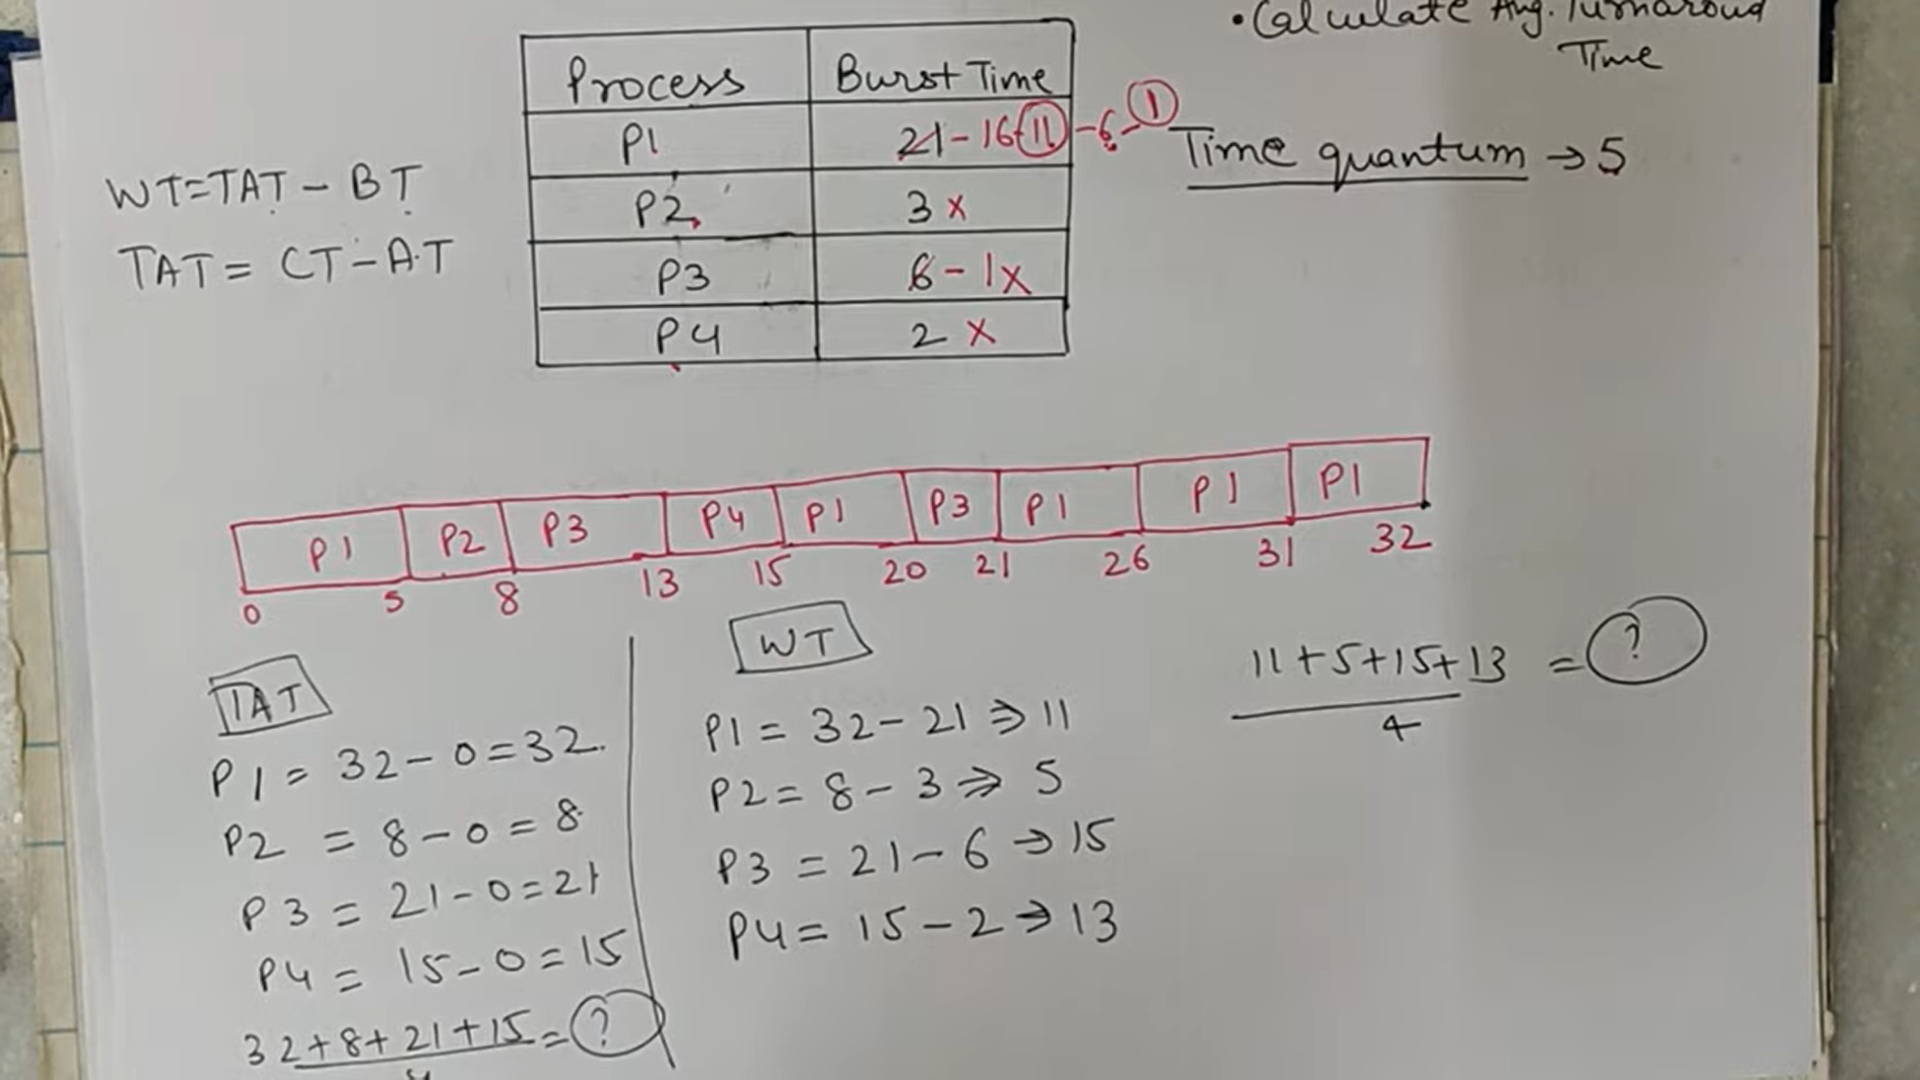 • Calculate Avg. Turnaroud
Time
Process Burst Time
P1 21-16-11-6-1
P2 3 x
P3 6-1x
P4 2 x
Time quantum → 5
WT=TAT-BT
TAT= CT-A.T
P1 P2 P3 P4 P1 P3 P1 P1 P1
0 5 8 13 15 20 21 26 31 32
TAT
P1 = 32-0=32.
P2 = 8-0=8
P3 = 21-0=21
P4 = 15-0=15
32+8+21+15 = ?
4
WT
P1 = 32-21 ⇒ 11
P2 = 8-3 ⇒ 5
P3 = 21-6 → 15
P4 = 15-2 → 13
11+5+15+13 = ?
4